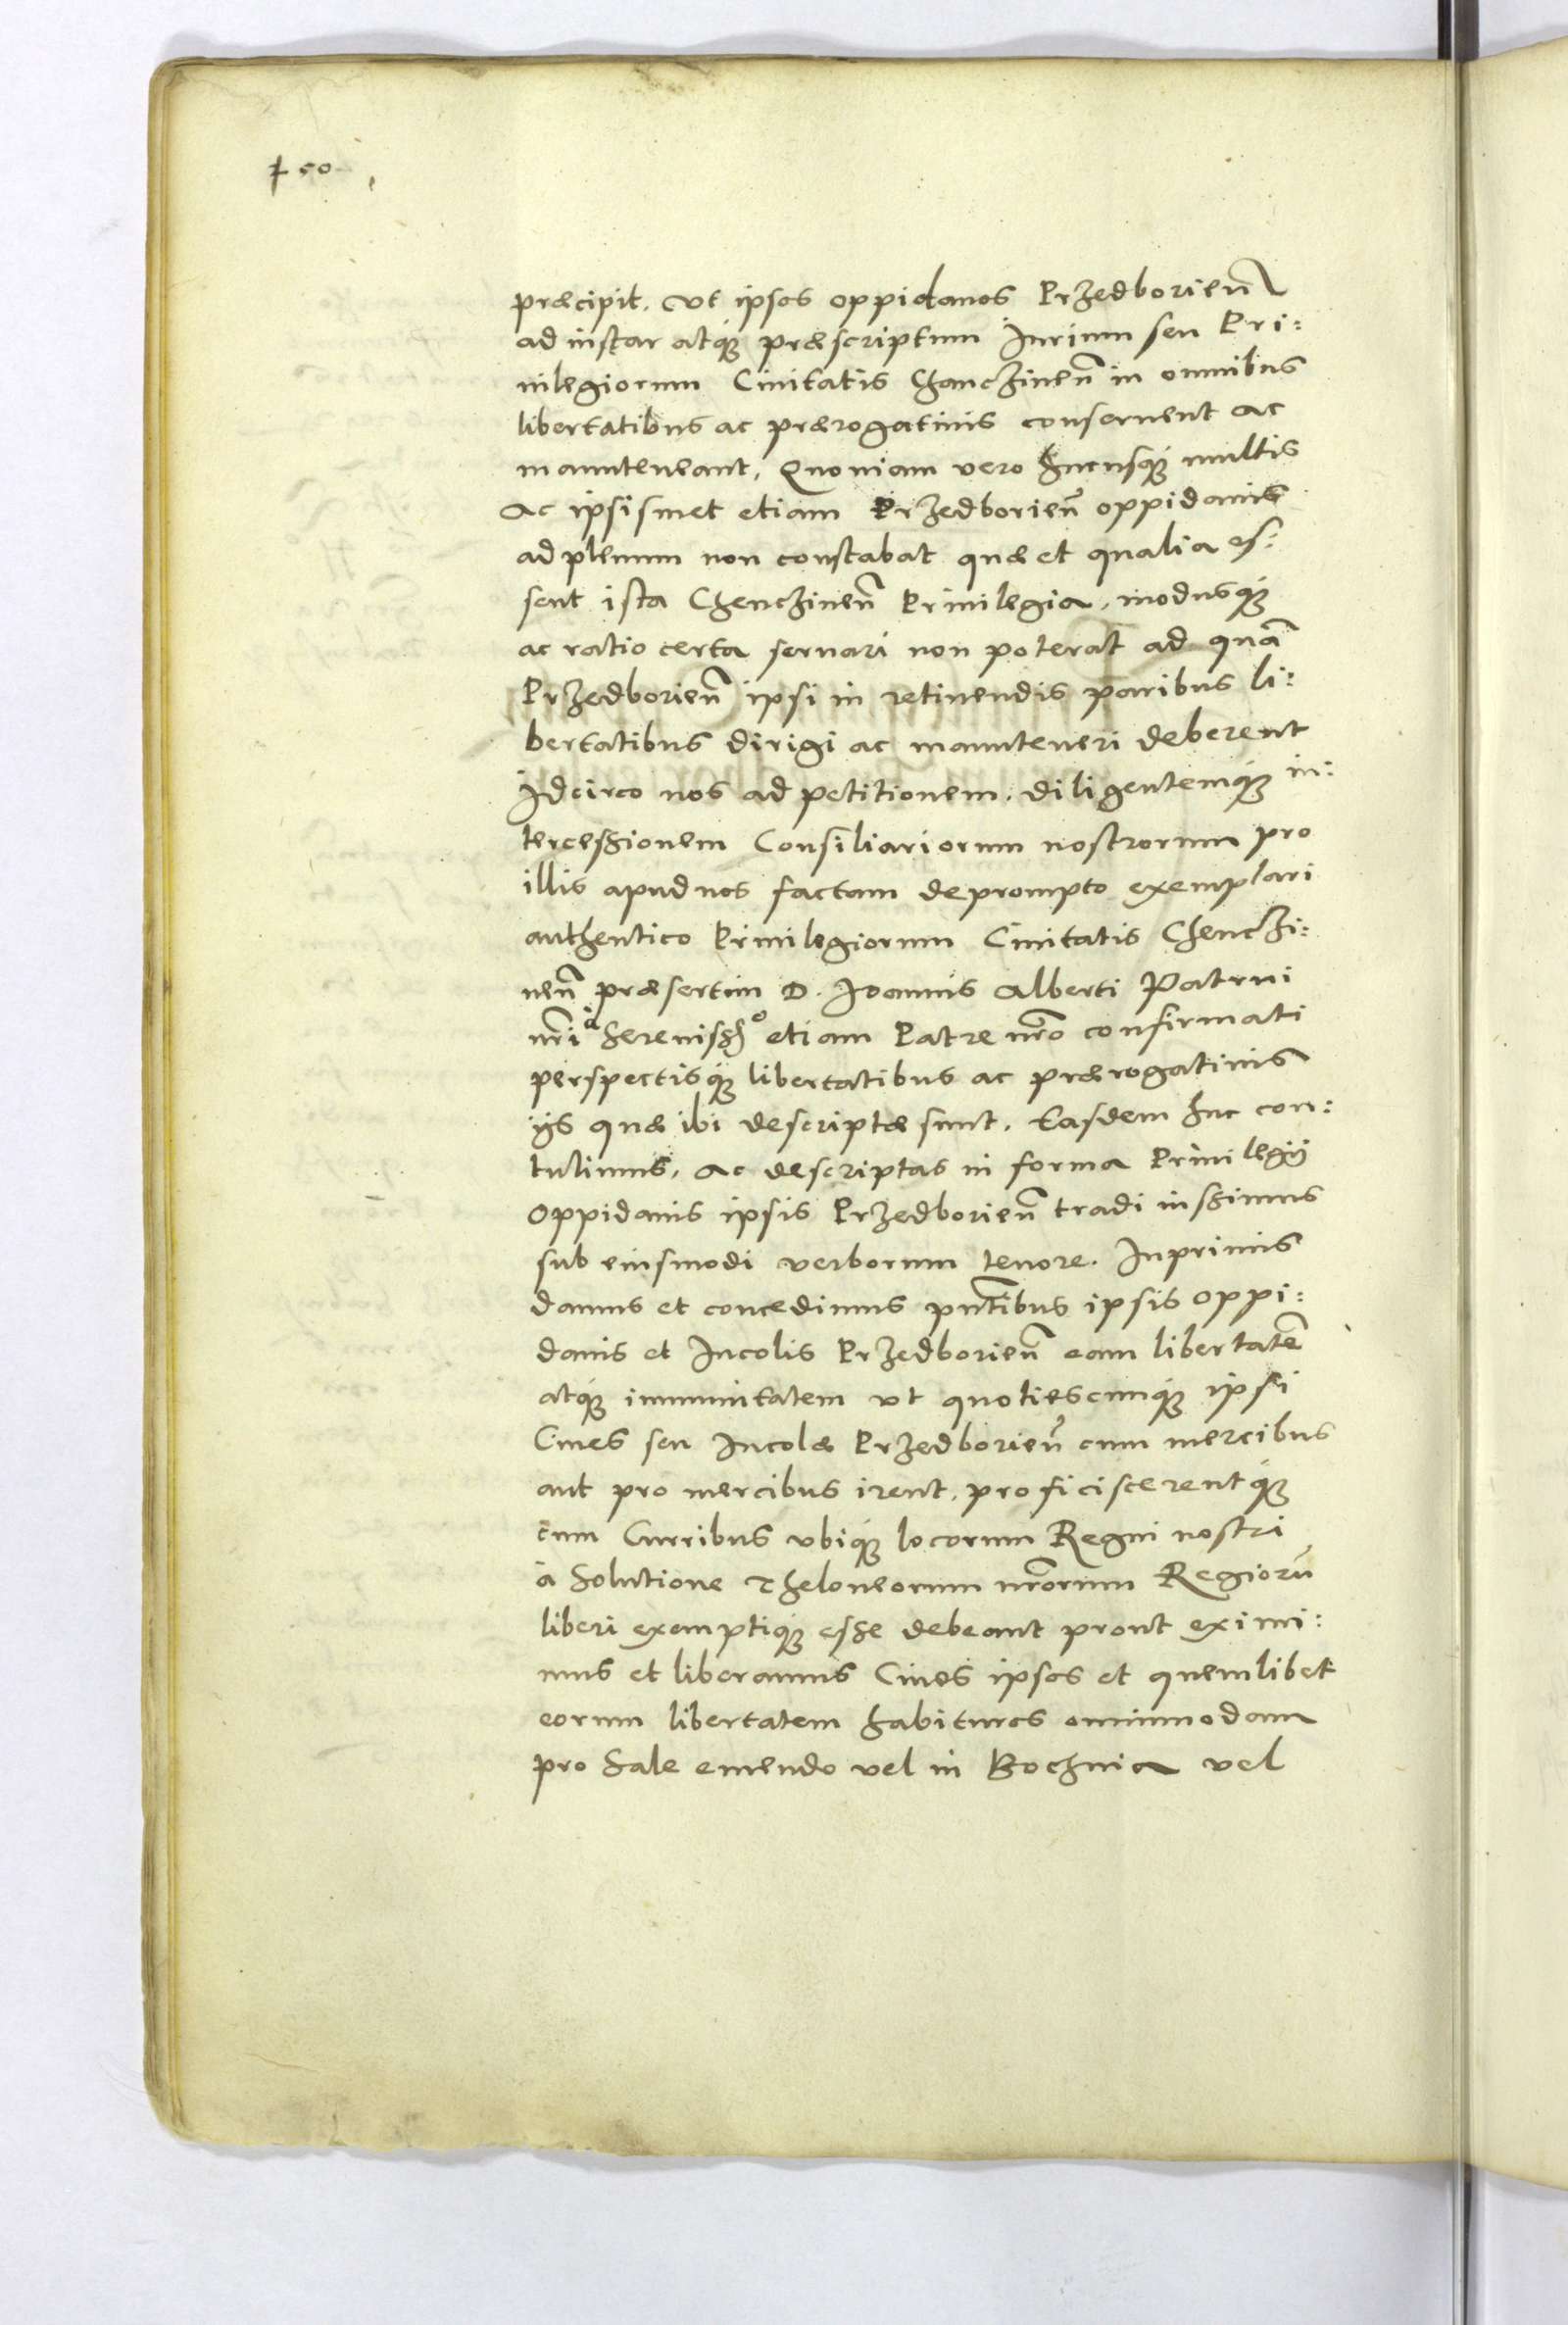 150
præcipit. Vt ipsos oppidanos Przedborien̄
ad instar atq́ præscriptum Jurium seu Pri:
uilegiorum Ciuitatis Chanczinen̄ in omnibus
libertatibus ac prærogatiuis conseruent ac
manuteneant, Quoniam vero hucusq́ multis
Ac ipsismet etiam Przedborien̄ oppidanis
ad plenum non constabat quæ et qualia es:
sent ista Chenczinen̄ Priuilegia, modusq́
ac ratio certa seruari non poterat ad quā
Przedborien̄ ipsi in retinendis paribus li:
bertatibus dirigi ac manuteneri deberent
Jdcirco nos ad petitionem, diligentemq́ in:
tercessionem Consiliariorum nostrorum pro
illis apud nos factam deprompto exemplari
authentico Priuilegiorum Ciuitatis Chenczi:
nen̄ præsertim D. Joannis Alberti Patrui
nr̄i à Sereniss̄o etiam Patre nr̄o confirmati
perspectisq́ libertatibus ac prærogatiuis
ijs quæ ibi descriptæ sunt. Easdem huc con:
tulimus, ac descriptas in forma Priuilegij
Oppidanis ipsis Przedborien̄ tradi iussimus
sub eiusmodi verborum tenore. Inprimis
damus et concedimus pn̄tibus ipsis oppi:
danis et Incolis Przedborien̄ eam libertatē
atq́ immunitatem vt quotiescunq́ ipsi
Ciues seu Incolæ Przedborien̄ cum mercibus
aut pro mercibus irent, proficiscerentq́
cum Curribus vbiq́ locorum Regni nostri
à Solutione Theloneorum nr̄orum Regiorū
liberi exemptiq́ esse debeant prout eximi:
mus et liberamus Ciues ipsos et quemlibet
eorum libertatem habituros omnimodam
pro Sale emendo vel in Bochnia vel